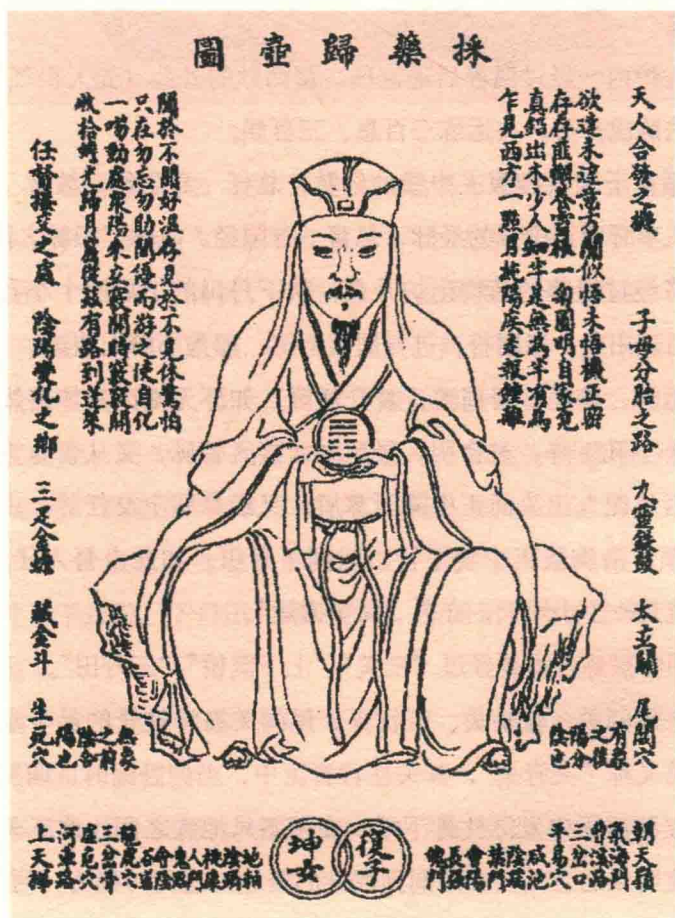 採藥歸壺圖
天人合發之機 子母分胎之路 九靈鐵鼓 太玄關 尾閭穴
欲達未達意方開似悟未悟機正密
存存匪懈養靈根一點圓明自家覓
真鉛出不少人知半是無為半有為
乍見西方一點月純陽疾走報鍾離
聞於不聞好溫存見於不見休驚怕
只在勿忘勿助間優而游之使自化
一陽動處眾陽來玄竅開時竅竅開
收拾蟾光歸月窟從茲有路到蓬萊
任督接交之處 陰陽變化之鄉 三足金蟾 藏金斗 生死穴
有象
之後
陽分
陰也
無象
之前
陰含
陽也
朝天嶺
氣海門
曹溪路
三岔口
平易穴
咸池
陰端
禁門
會陽
長強
魄門
復子
坤女
地軸
陰蹻
桃康
人門
鬼路
會陰
谷道
龍虎穴
三岔骨
虛危穴
河車路
上天梯